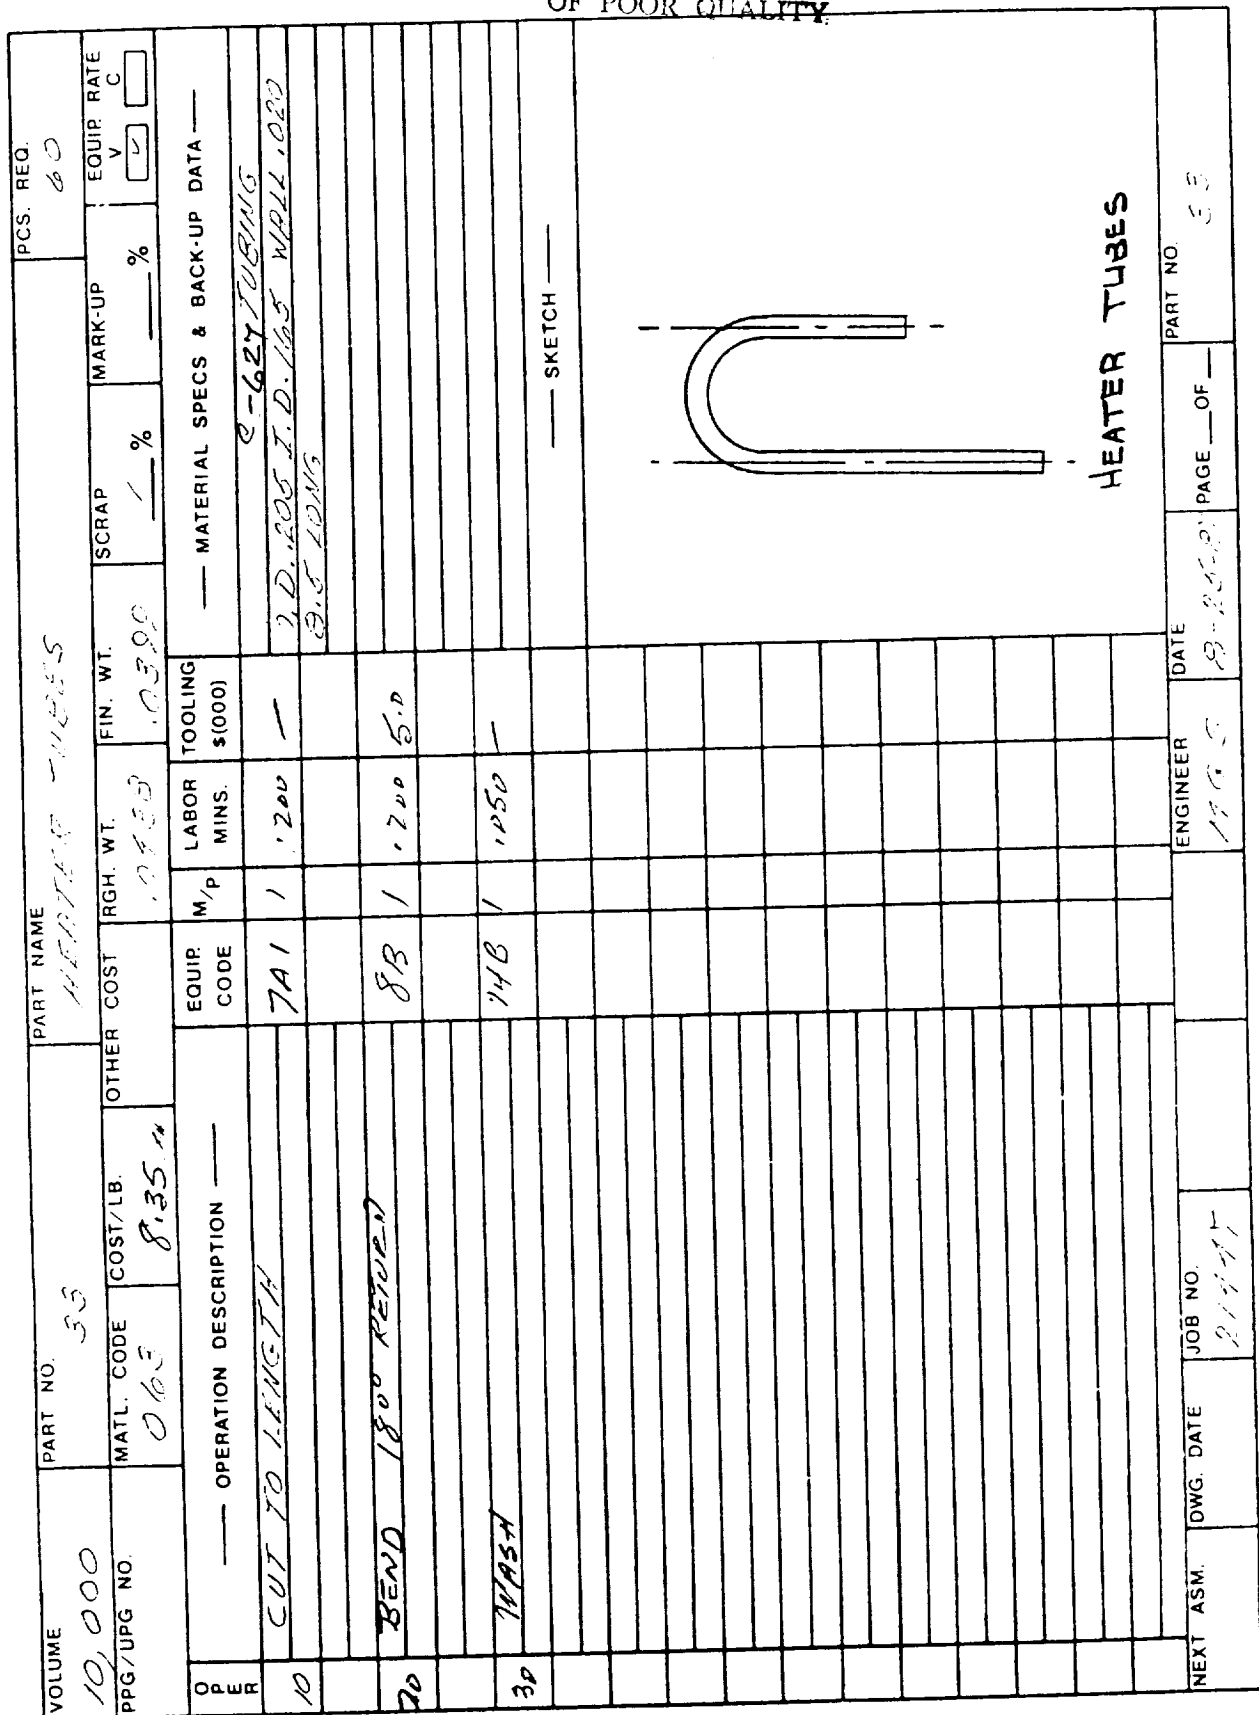 OF POOR QUALITY
VOLUME
10,000
PART NO.
33
PART NAME
HEATER TUBES
PCS. REQ.
60
PPG/UPG NO.
MATL. CODE
063
COST/LB.
8.35
OTHER COST
RGH. WT.
FIN. WT.
SCRAP
1 %
MARK-UP
%
EQUIP. RATE
V C
OPER
— OPERATION DESCRIPTION —
EQUIP. CODE
M/P
LABOR MINS.
TOOLING $(000)
— MATERIAL SPECS & BACK-UP DATA —
10 CUT TO LENGTH 7A1 1 .200 —
BEND 180° RETURN 8B 1 .200 5.0
30 WASH 14B 1 .050 —
TUBING
O.D. .205 I.D. .165 WALL .020
LONG
— SKETCH —
HEATER TUBES
NEXT ASM.
DWG. DATE
JOB NO.
ENGINEER
DATE
PAGE OF
PART NO.
33